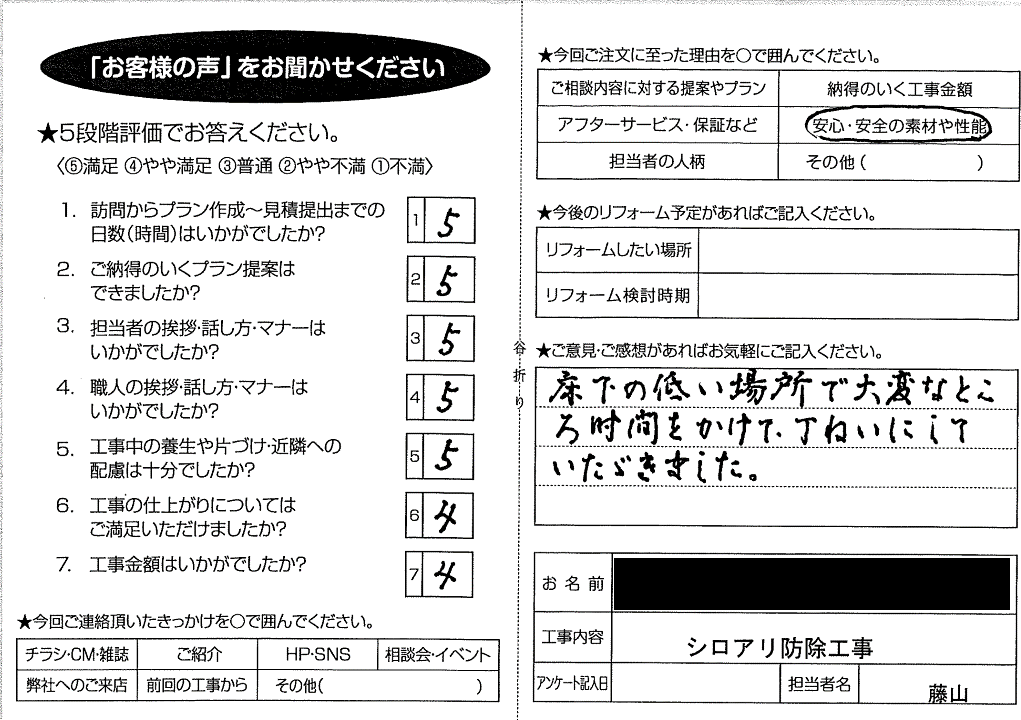 「お客様の声」をお聞かせください
★5段階評価でお答えください。
〈⑤満足 ④やや満足 ③普通 ②やや不満 ①不満〉
1. 訪問からプラン作成～見積提出までの
日数(時間)はいかがでしたか?
1 5
2. ご納得のいくプラン提案は
できましたか?
2 5
3. 担当者の挨拶・話し方・マナーは
いかがでしたか?
3 5
4. 職人の挨拶・話し方・マナーは
いかがでしたか?
4 5
5. 工事中の養生や片づけ・近隣への
配慮は十分でしたか?
5 5
6. 工事の仕上がりについては
ご満足いただけましたか?
6 4
7. 工事金額はいかがでしたか?
7 4
★今回ご連絡頂いたきっかけを○で囲んでください。
チラシ・CM・雑誌 ご紹介 HP・SNS 相談会・イベント
弊社へのご来店 前回の工事から その他( )
谷折り
★今回ご注文に至った理由を○で囲んでください。
ご相談内容に対する提案やプラン 納得のいく工事金額
アフターサービス・保証など 安心・安全の素材や性能
担当者の人柄 その他( )
★今後のリフォーム予定があればご記入ください。
リフォームしたい場所
リフォーム検討時期
★ご意見・ご感想があればお気軽にご記入ください。
床下の低い場所で大変なとこ
ろ時間をかけて、丁ねいにして
いただきました。
お名前
工事内容 シロアリ防除工事
アンケート記入日 担当者名 藤山